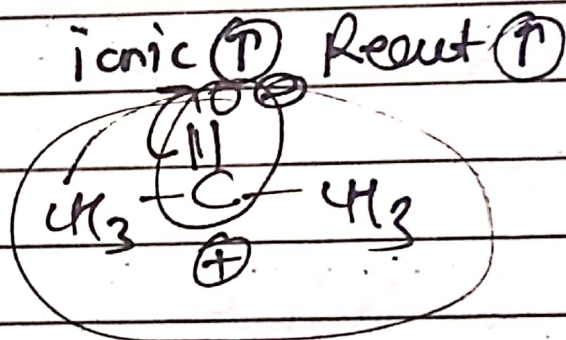 ionic ↑ Reaut ↑
O ⊖
||
CH3 - C - CH3
⊕